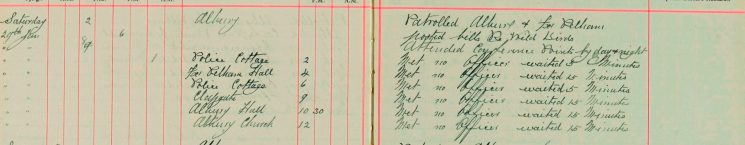 Saturday 2 Albury Patrolled Albury & Fx Pelham
29th 6 posted bills Re Wild Birds
" " 9 Attended Conference Points by day & night
" " 1 Police Cottage 2 Met no Officer waited 5 Minutes
" " Fx Pelham Hall 4 Met no Officer waited 15 Minutes
" " Police Cottage 6 Met no Officer waited 5 Minutes
" " 9 Met no Officer waited 15 Minutes
" " Albury Hall 10 30 Met no Officer waited 15 Minutes
" " Albury Church 12 Met no Officer waited 15 Minutes